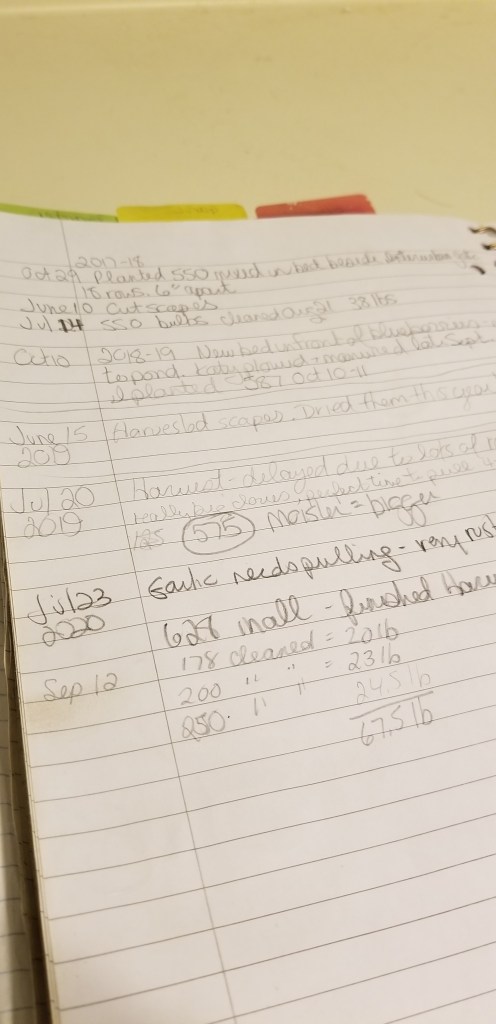 2017-18
Oct 29 Planted 550 in bed beside
18 rows. 6" apart
June 10 Cut scapes
Jul 14 550 bulbs cleaned Aug 21 38 lbs
Oct 10 2018-19 New bed in front of blueberries
to pond. plowed + manured Sept
I planted 587 Oct 10-11
June 15 Harvested scapes. Dried them this year
2019
Jul 20 Harvest - delayed due to lots of
2019 really big cloves - perfect time to
185 575 Moister = bigger
Jul 23 Garlic needs pulling - very
2020 628 in all - finished
178 cleaned = 20 lb
Sep 12 200 " " = 23 lb
250 " " 24.5 lb
67.5 lb